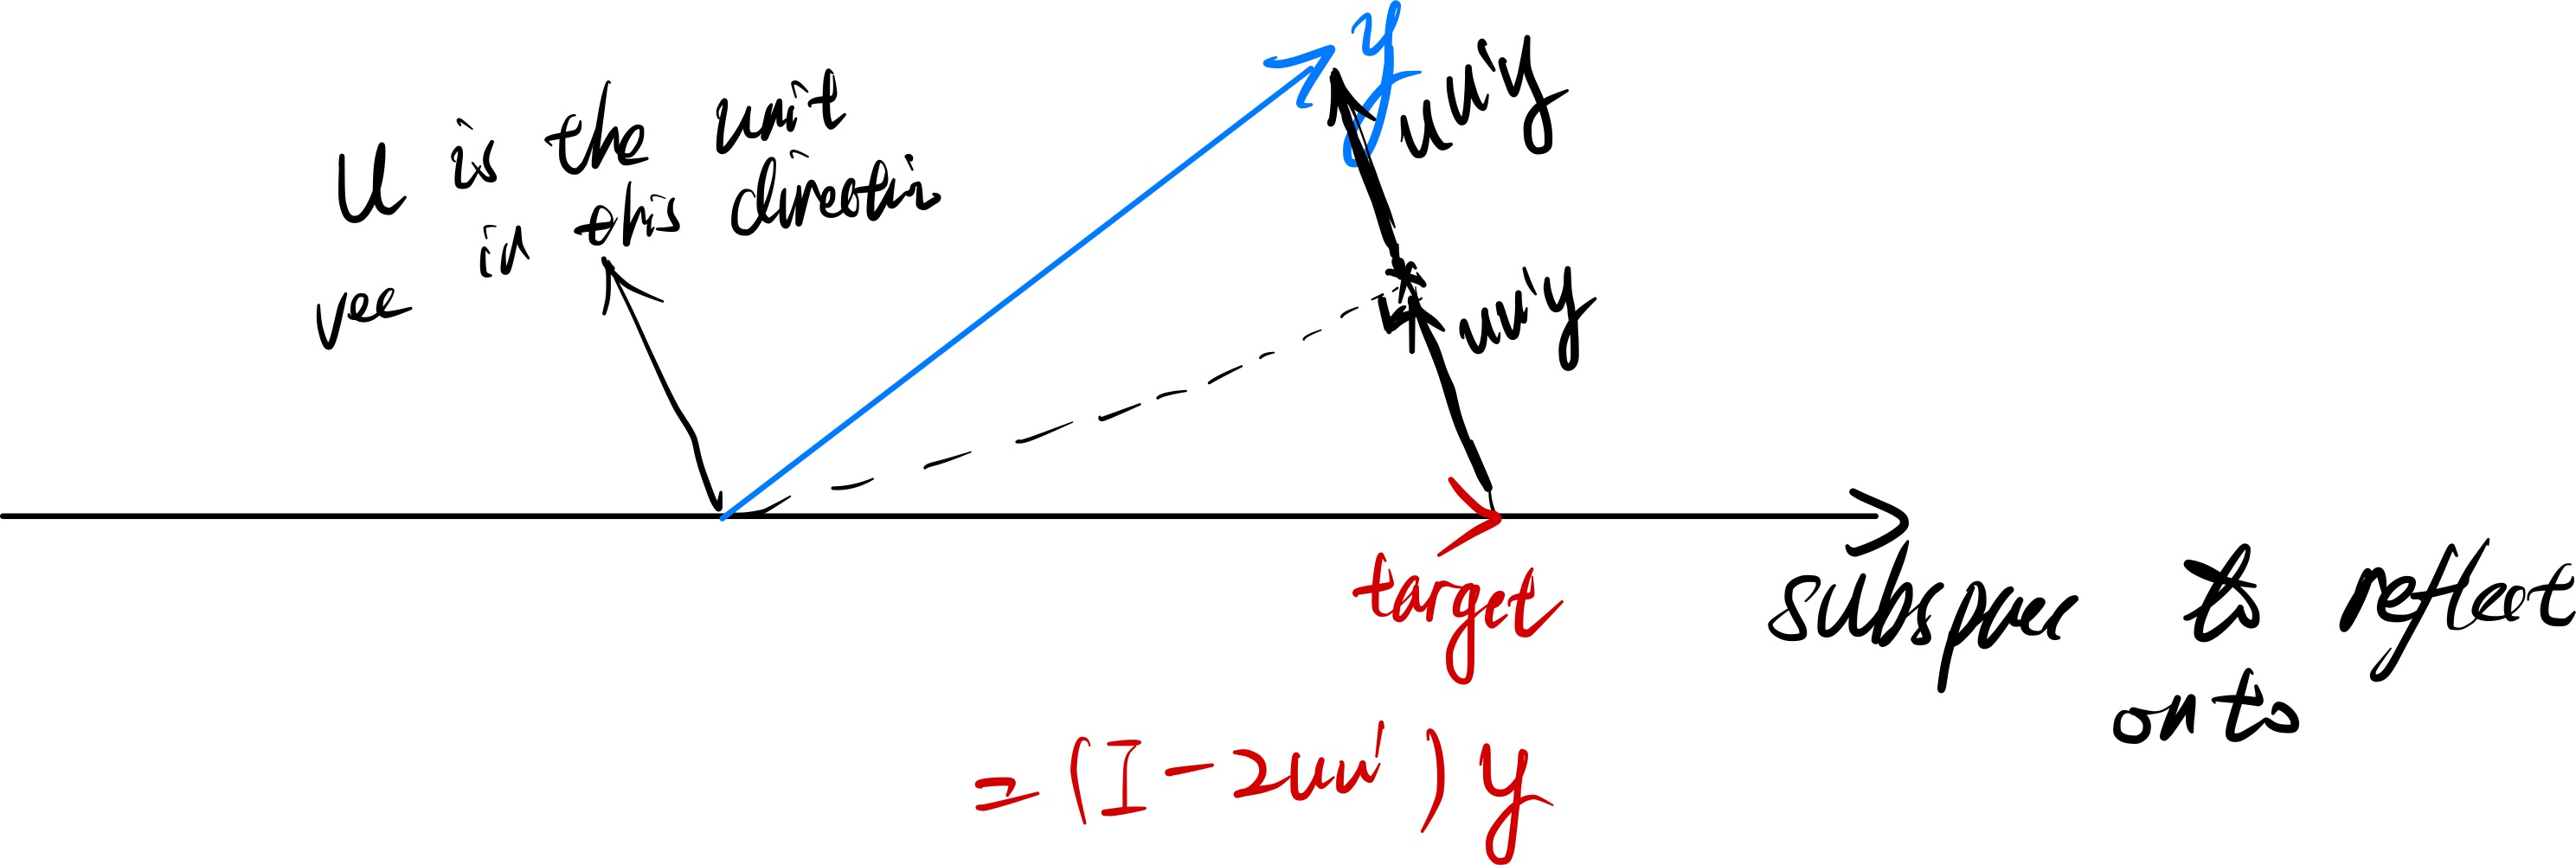 u is the unit
vec in this direction
y
uu'y
uu'y
target
= (I - 2uu') y
subspace to reflect
onto